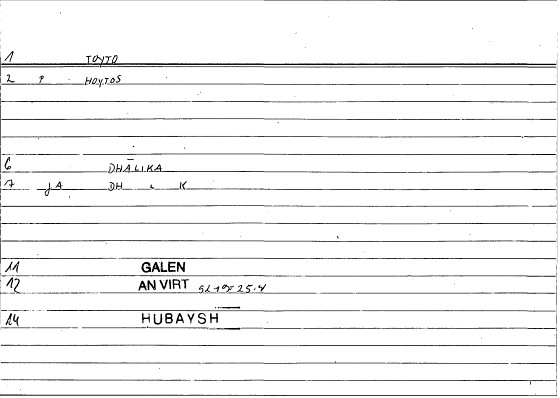 1 TOYTO
2 P HOYTOS
6 DHĀLIKA
7 JA DH L K
11 GALEN
12 AN VIRT
14 HUBAYSH